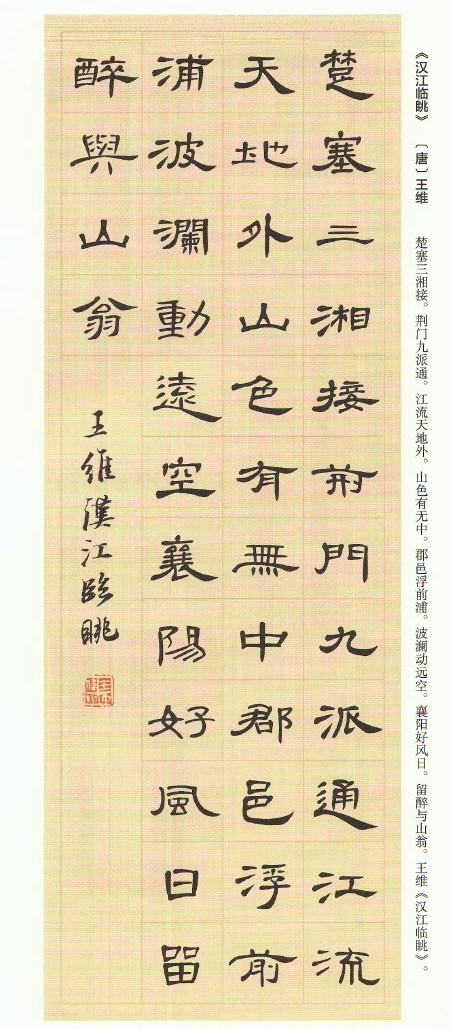 《汉江临眺》 〔唐〕王维 楚塞三湘接。荆门九派通。江流天地外。山色有无中。郡邑浮前浦。波澜动远空。襄阳好风日。留醉与山翁。王维《汉江临眺》。
楚塞三湘接荊門九派通江流
天地外山色有無中郡邑浮前
浦波瀾動遠空襄陽好風日留
醉與山翁
王維漢江臨眺